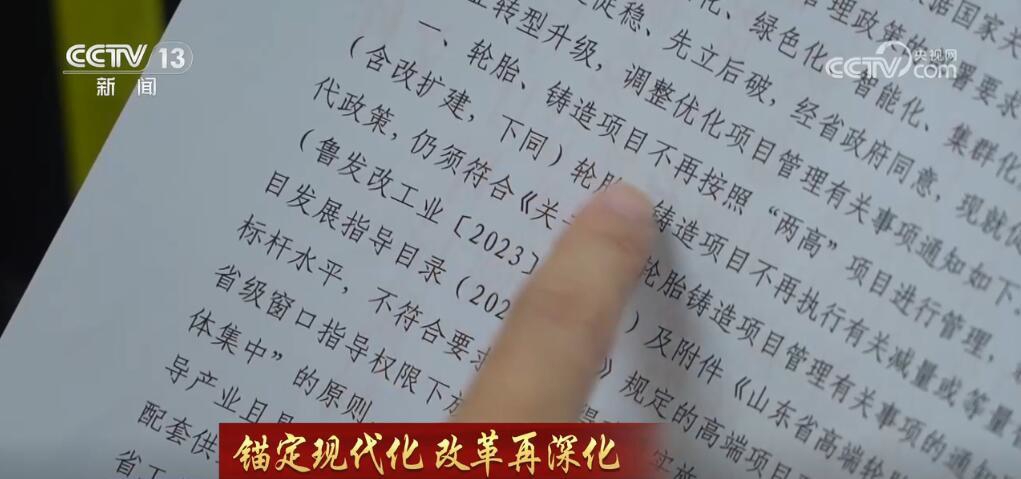 CCTV 13
新闻
央视网
CCTV.com
据国家关
管理政策的 署要求
化、绿色化、智能化、集群化
促稳、先立后破，经省政府同意，现就促
业转型升级，调整优化项目管理有关事项通知如下。
一、轮胎、铸造项目不再按照“两高”项目进行管理，
（含改扩建，下同）轮胎 铸造项目不再执行有关减量或等量
代政策，仍须符合《关 轮胎铸造项目管理有关事项的通知
（鲁发改工业〔2023〕 ）及附件《山东省高端轮胎
目发展指导目录（202 》规定的高端项目
标杆水平，不符合要求
省级窗口指导权限下放
体集中”的原则， 实施
导产业且
配套供
省工
锚定现代化 改革再深化